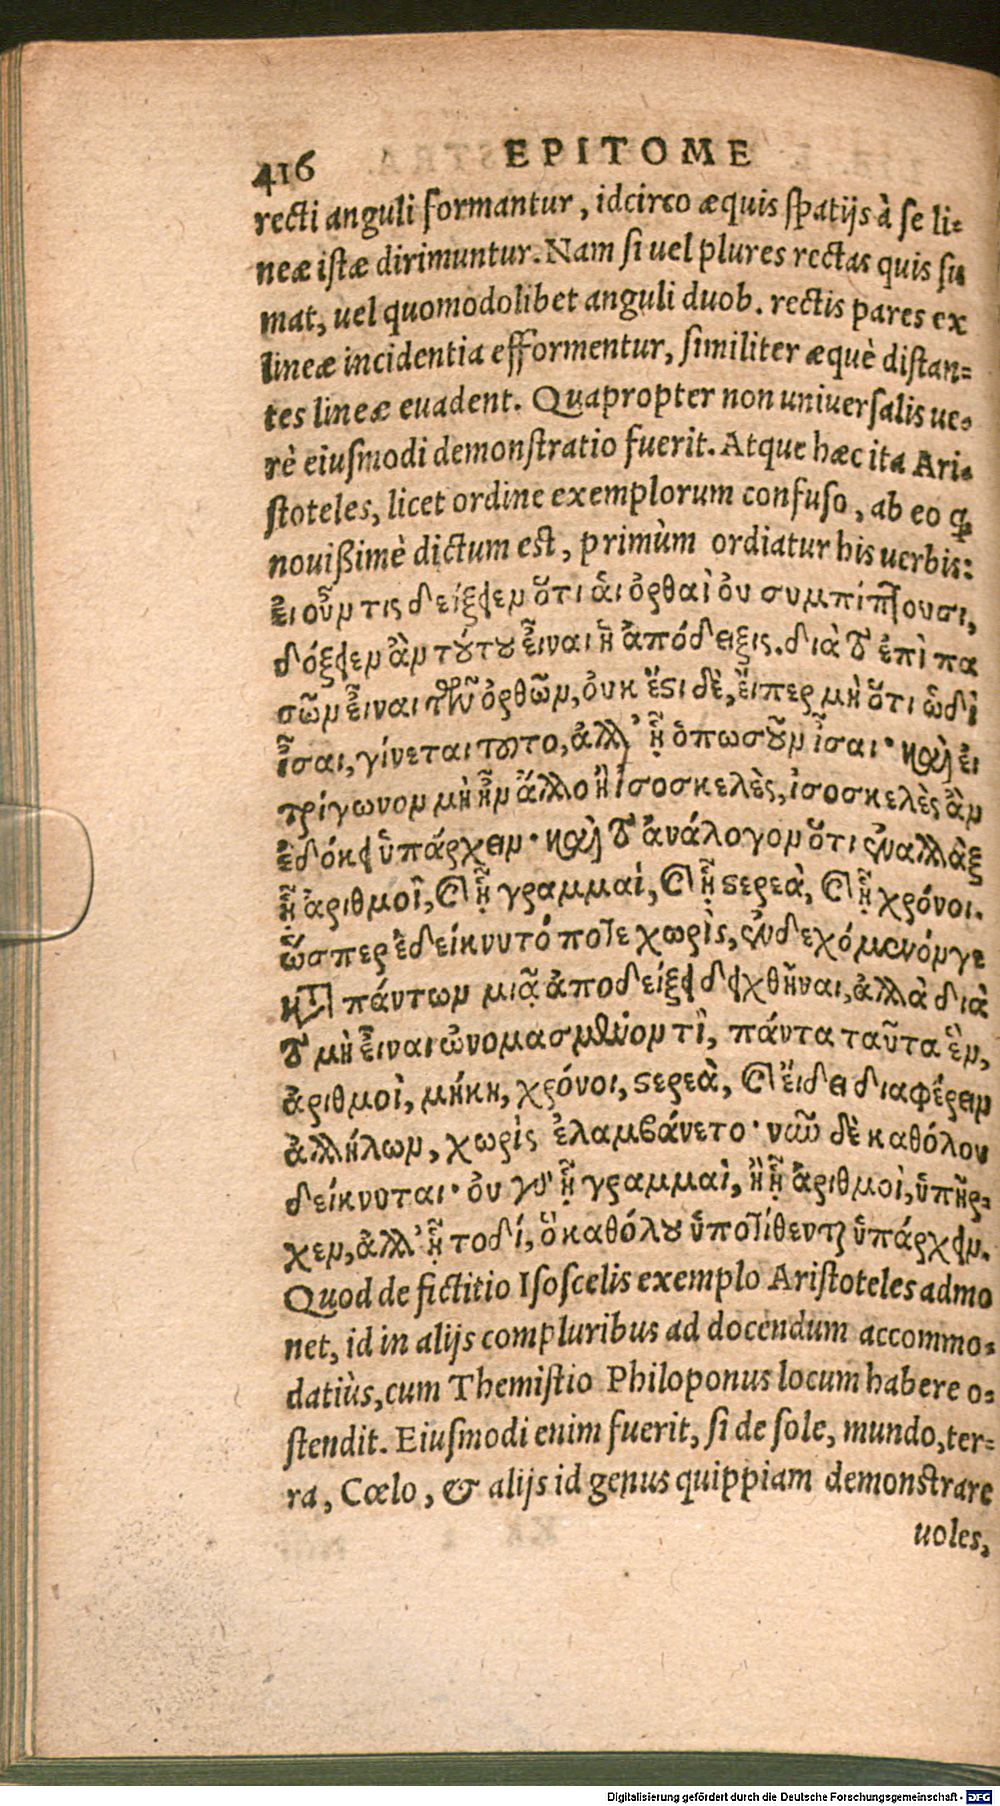 416 EPITOME
recti anguli formantur, idcirco æquis spatijs à se li-
neæ istæ dirimuntur. Nam si uel plures rectas quis su
mat, uel quomodolibet anguli duob. rectis pares ex
lineæ incidentia efformentur, similiter æquè distan-
tes lineæ euadent. Quapropter non uniuersalis ue-
rè eiusmodi demonstratio fuerit. Atque hæc ita Ari-
stoteles, licet ordine exemplorum confuso, ab eo ꝙ
nouißimè dictum est, primùm ordiatur his uerbis:
ἐι οὖν τις δείξειεν ὅτι ἁι ὀρθαὶ ὀυ συμπίπτουσι,
δόξειεν ἂν τούτου ἐῖναι ἡ ἀπόδειξις. διὰ τὸ ἐπὶ πα
σῶν ἐῖναι τῶν ὀρθῶν, ὀυκ ἔστι δὲ, ἔιπερ μὴ ὅτι ὡδὶ
ἶσαι, γίνεται τοῦτο, ἀλλ' ᾗ ὁπωσοῦν ἶσαι· καὶ ἐι
τρίγωνον μὴ ἦν ἄλλο ἢ ἰσοσκελὲς, ἰσοσκελὲς ἂν
ἐδόκει ὑπάρχειν· καὶ τὸ ἀνάλογον ὅτι ἐναλλὰξ
ᾗ ἀριθμοὶ, καὶ ᾗ γραμμαὶ, καὶ ᾗ στερεὰ, καὶ ᾗ χρόνοι.
ὥσπερ ἐδείκνυτό ποτε χωρὶς, ἐνδεχόμενόν γε
κατὰ πάντων μιᾷ ἀποδείξει δειχθῆναι, ἀλλὰ διὰ
τὸ μὴ ἐῖναι ὠνομασμένον τὶ, πάντα ταῦτα ἓν,
ἀριθμοὶ, μήκη, χρόνοι, στερεὰ, καὶ ἔιδει διαφέρειν
ἀλλήλων, χωρὶς ἐλαμβάνετο· νῦν δὲ καθόλου
δείκνυται· ὀυ γὰρ ᾗ γραμμαὶ, ἢ ᾗ ἀριθμοὶ, ὑπῆρ-
χεν, ἀλλ' ᾗ τοδί, ὃ καθόλου ὑποτίθενται ὑπάρχειν.
Quod de fictitio Isoscelis exemplo Aristoteles admo
net, id in alijs compluribus ad docendum accommo-
datiùs, cum Themistio Philoponus locum habere o-
stendit. Eiusmodi enim fuerit, si de sole, mundo, ter-
ra, Cœlo, & alijs id genus quippiam demonstrare
uoles,
Digitalisierung gefördert durch die Deutsche Forschungsgemeinschaft - DFG